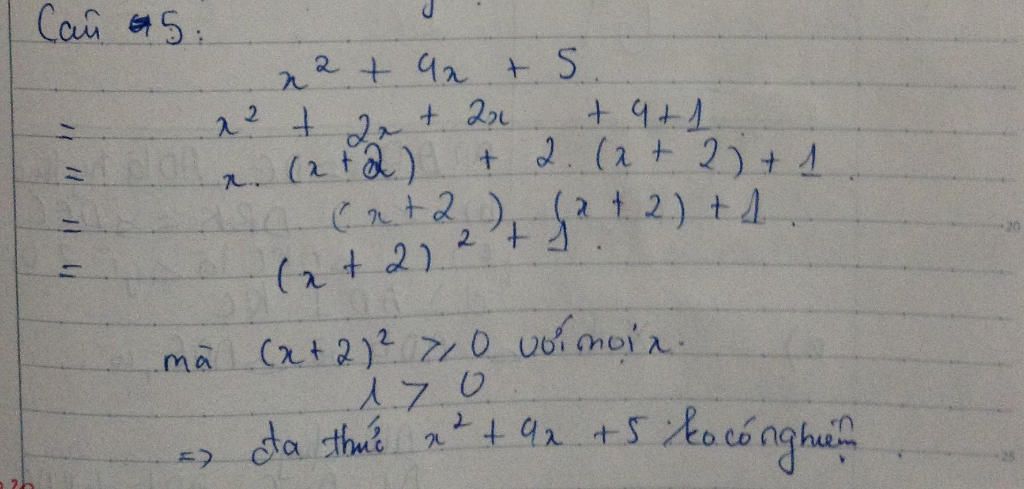 Câu 5:
x² + 4x + 5
= x² + 2x + 2x + 4 + 1
= x. (x + 2) + 2. (x + 2) + 1
= (x + 2). (x + 2) + 1.
= (x + 2)² + 1.
mà (x + 2)² ≥ 0 với mọi x.
1 > 0
=> đa thức x² + 4x + 5 ko có nghiệm.